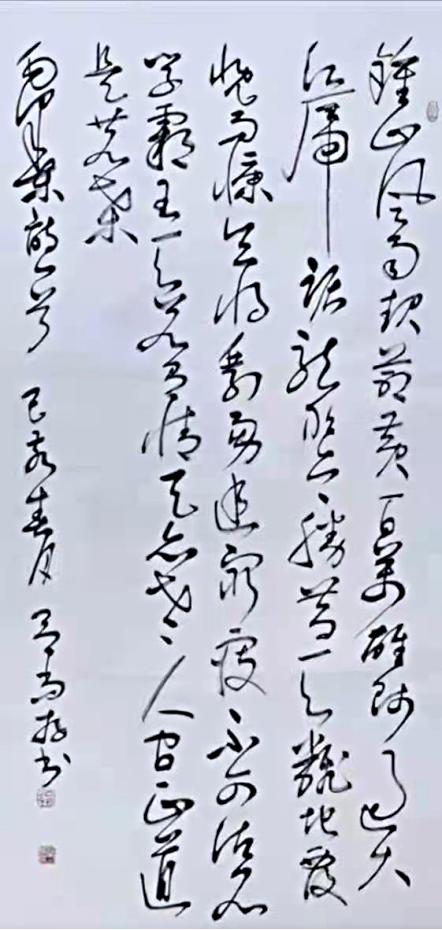 鍾山风雨起苍黄百萬雄师过大
江虎踞龙盘今勝昔天翻地覆
慨而慷宜将剩勇追穷寇不可沽名
学霸王天若有情天亦老人间正道
是苍桑
己亥春月 书